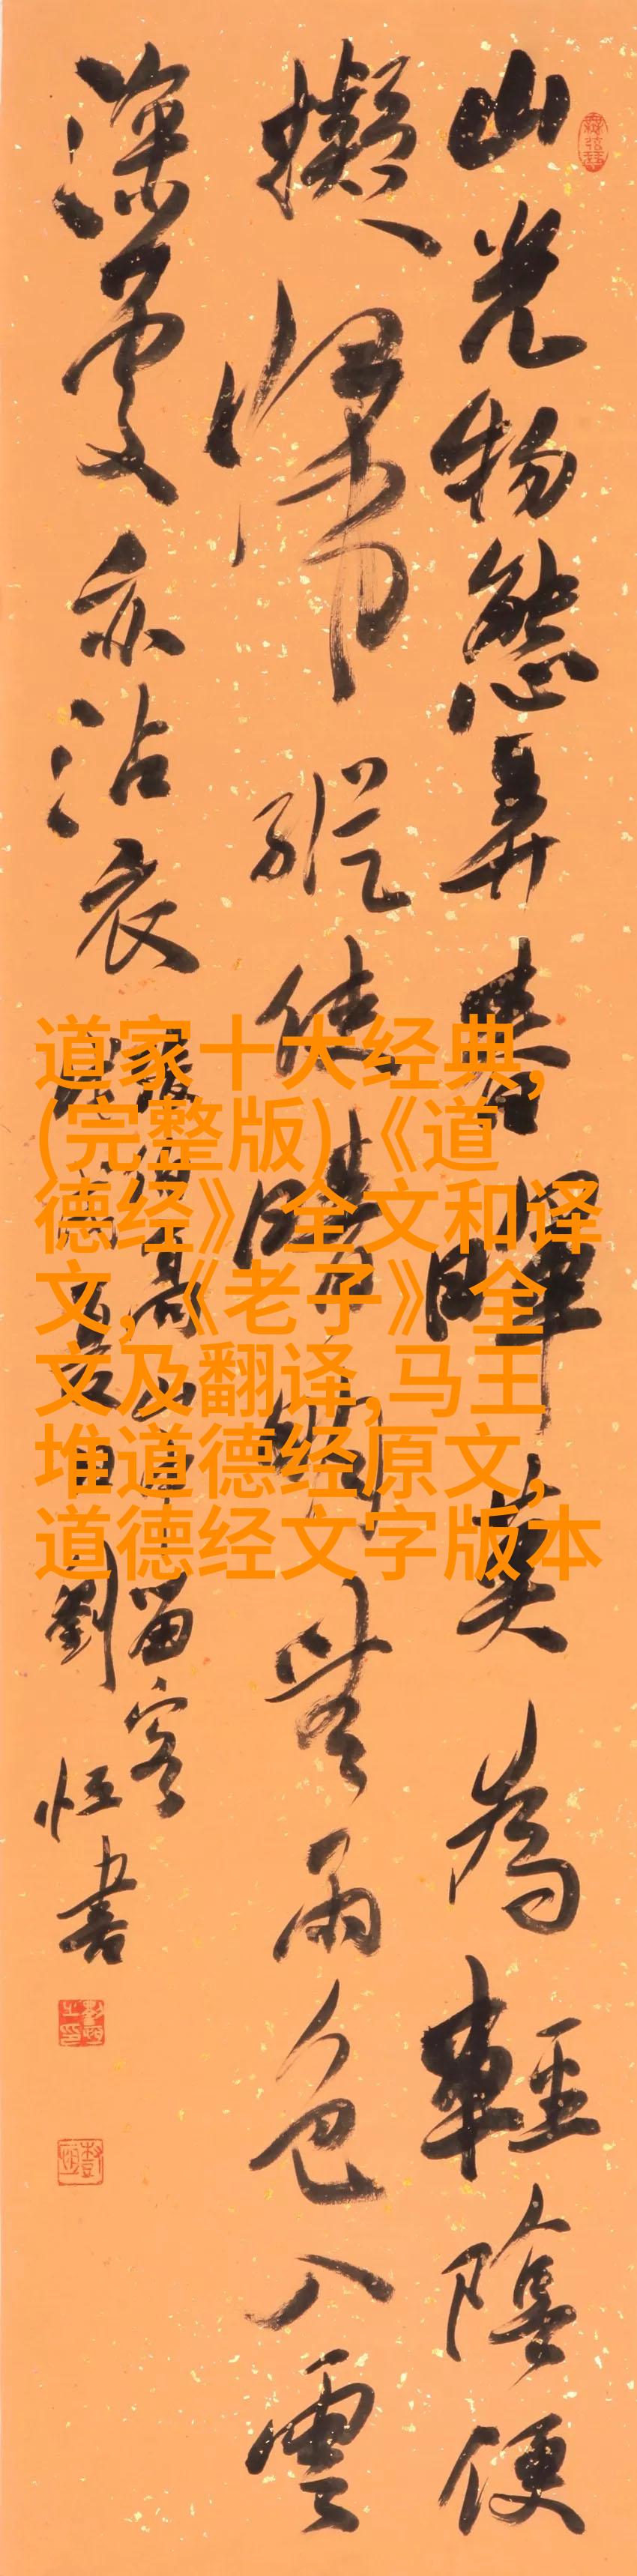 山光物態弄春暉莫為輕陰便
擬歸縱使晴明無雨色入雲
深處亦沾衣
留客
劉恒書
道家十大经典,
(完整版)《道
德经》全文和译
文,《老子》全
文及翻译,马王
堆道德经原文,
道德经文字版本